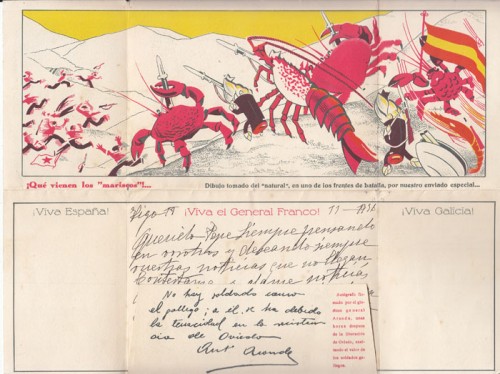 ¡Qué vienen los "marisque"!...
Dibujo tomado del "natural", en uno de los frentes de batalla, por nuestro enviado especial...
¡Viva España!
¡Viva el General Franco!
¡Viva Galicia!
Vigo 19 11-1936
Querido Pepe Siempre pensando
en vosotros y deseando siempre
vuestras noticias que no llegan
No hay soldado como
el gallego; a el se ha debido
la tenacidad en la
de Oviedo
Ant Aranda
Autógrafo
mado por el
general
Aranda,
horas después
de la liberación
de Oviedo,
el valor de
los soldados
gallegos.